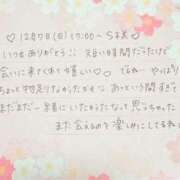 ♡12月7日(日) 17:00〜 S様♡
いつもありがとう♡♡ 短い時間だったけど
会いに来てくれて嬉しい♡。でもねー やっぱり
ちょっと物足りなかったかも な あっという間すぎて
まだまだ一緒にいたかったなって思っちゃった
また会えるのを楽しみにしてるね